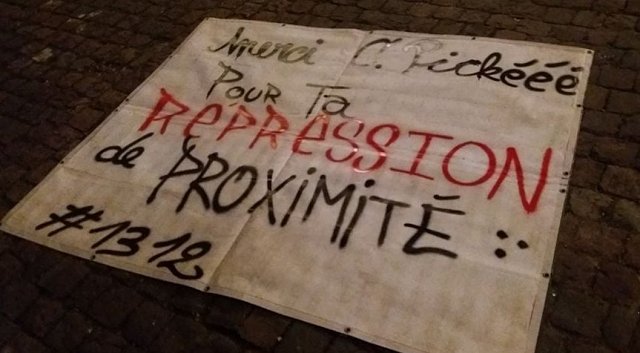 Merci C. Pickééé
POUR TA
RÉPRESSION
de PROXiMiTÉ :.
#1312